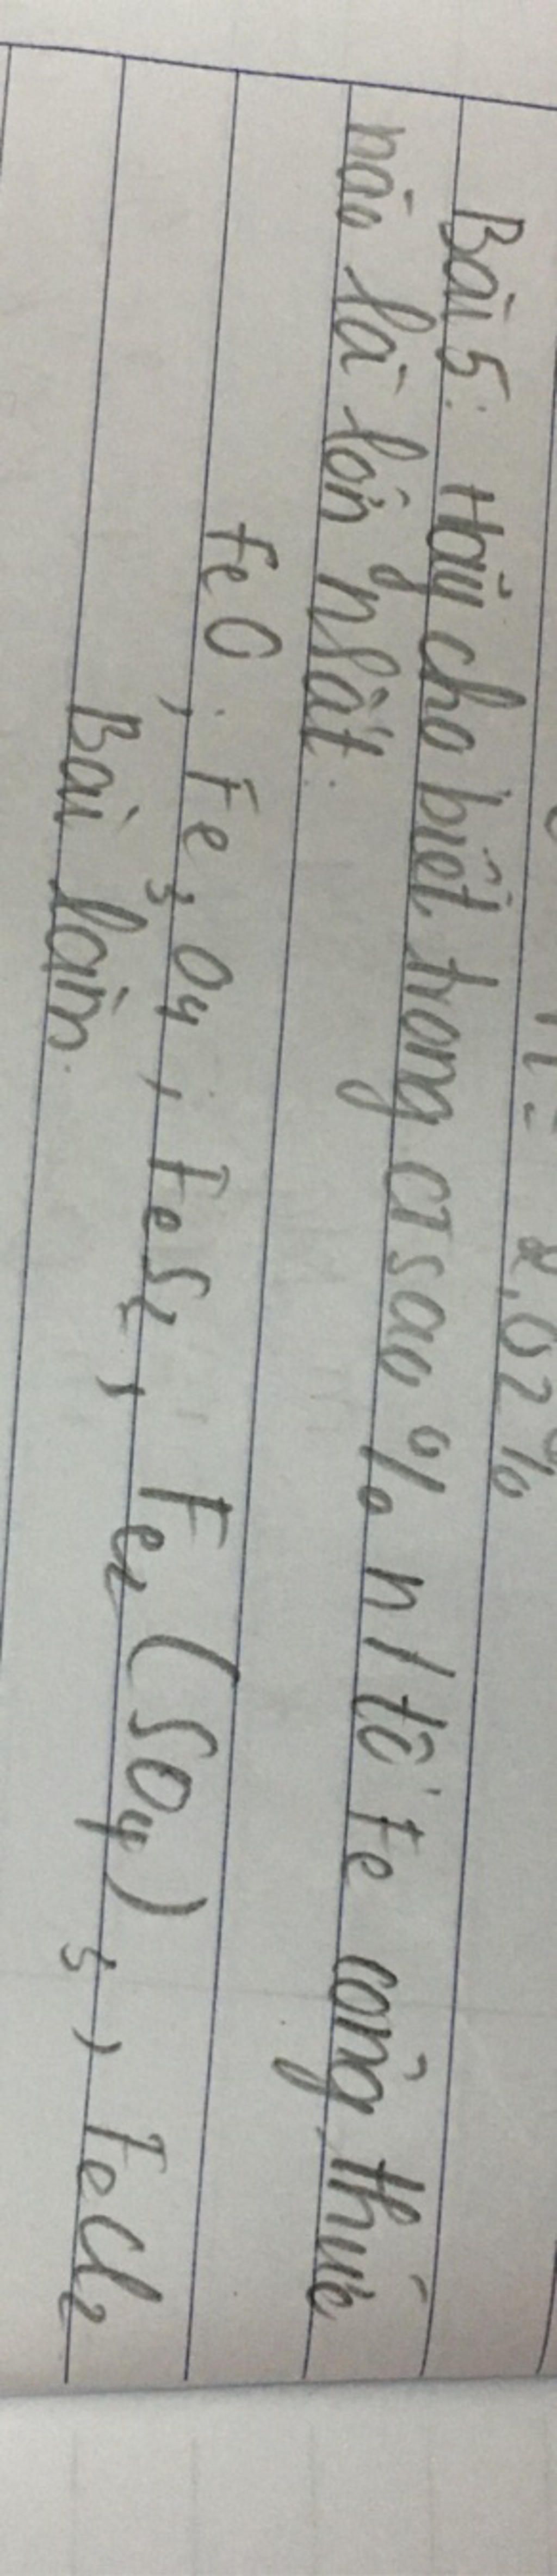 n = 2,02%
Bài 5: Hãy cho biết trong CT sau % n/tố Fe công thức
nào là lớn nhất:
FeO, Fe3O4, FeS2, Fe2(SO4)3, FeCl2
Bài làm.